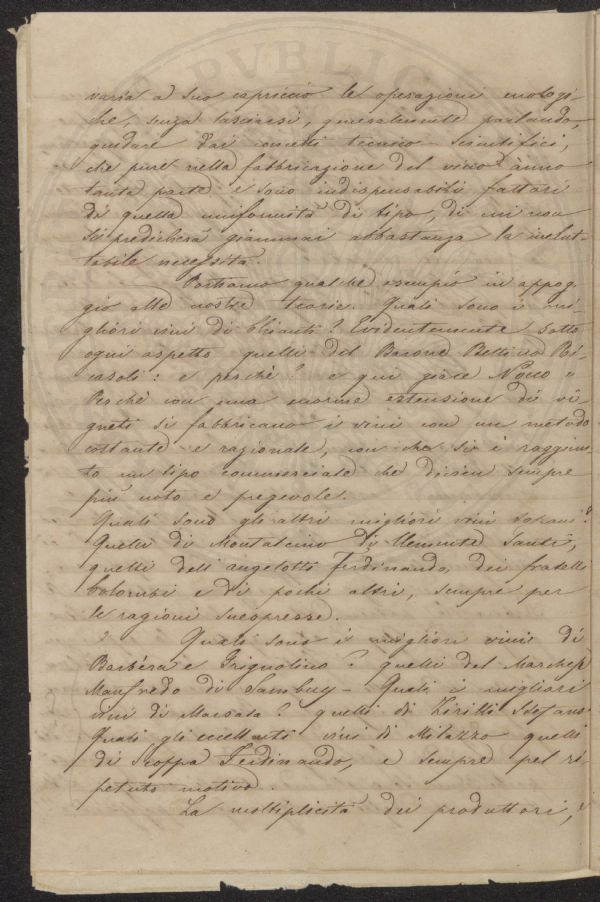 varia a suo capriccio le operazioni enologi-
che, senza lasciarsi, generalmente parlando,
guidare dai concetti tecnico-scientifici,
che pure nella fabbricazione del vino ànno
tanta parte e sono indispensabili fattori
di quella uniformità di tipo, di cui non
si predicherà giammai abbastanza la inelut-
tabile necessità.
Portiamo qualche esempio in appog-
gio alle nostre teorie. Quali sono i mi-
gliori vini di Chianti? Evidentemente sotto
ogni aspetto quelli del Barone Bettino Ri-
casoli: e perché? e qui giace Nocco
Perché con una enorme estensione di vi-
gneti si fabbricano i vini con un metodo
costante e razionale, con che si è raggiun-
to un tipo commerciale che divien sempre
più noto e pregevole.
Quali sono gli altri migliori vini toscani?
Quelli di Montalcino di Clemente Santi,
quelli dell'angelotti Ferdinando, dei fratelli
Colombi e di pochi altri, sempre per
le ragioni suespresse.
Quali sono i migliori vini di
Barbèra e Grignolino? quelli del Marchese
Manfredo di Sambuy - Quali i migliori
vini di Marsala? quelli di Zirilli Stefano
Quali gli eccellenti vini di Milazzo quelli
di Scoppa Ferdinando, e sempre pel ri-
petuto motivo.
La moltiplicità dei produttori,
PUBLIC